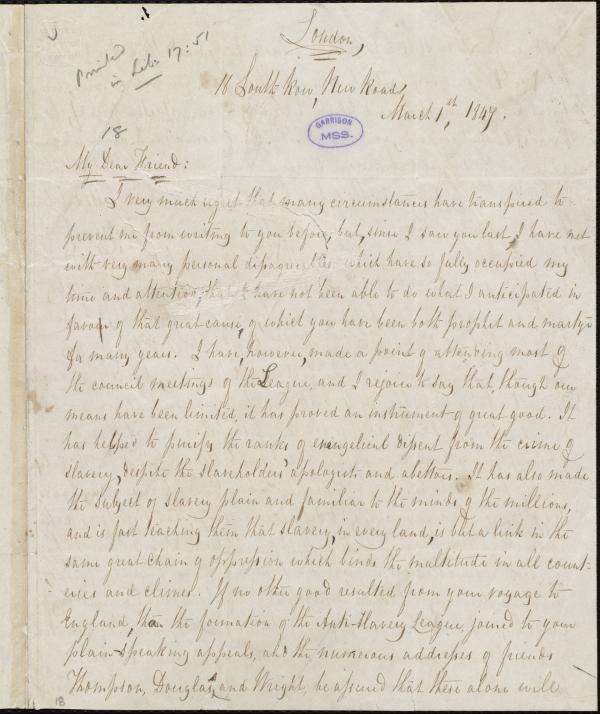 London,
Printed
in Lib. 17:51
16 South Row, New Road,
March 1st, 1847.
GARRISON
MSS.
18
My Dear Friend:
I very much regret that many circumstances have transpired to
prevent me from writing to you before; but, since I saw you last, I have met
with very many personal disagreeables, which have so fully occupied my
time and attention, that I have not been able to do what I anticipated in
favour of that great cause, of which you have been both prophet and martyr
for many years. I have, however, made a point of attending most of
the council meetings of the League, and I rejoice to say that, though our
means have been limited, it has proved an instrument of great good. It
has helped to purify the ranks of evangelical dissent from the crime of
slavery, despite the slaveholders' apologists and abettors. It has also made
the subject of slavery plain and familiar to the minds of the millions,
and is fast teaching them that slavery, in every land, is but a link in the
same great chain of oppression which binds the multitude in all count-
ries and climes. If no other good resulted from your voyage to
England, than the formation of the Anti-Slavery League, joined to your
plain-speaking appeals, and the numerous addresses of friends
Thompson, Douglass, and Wright, be assured that these alone will
18